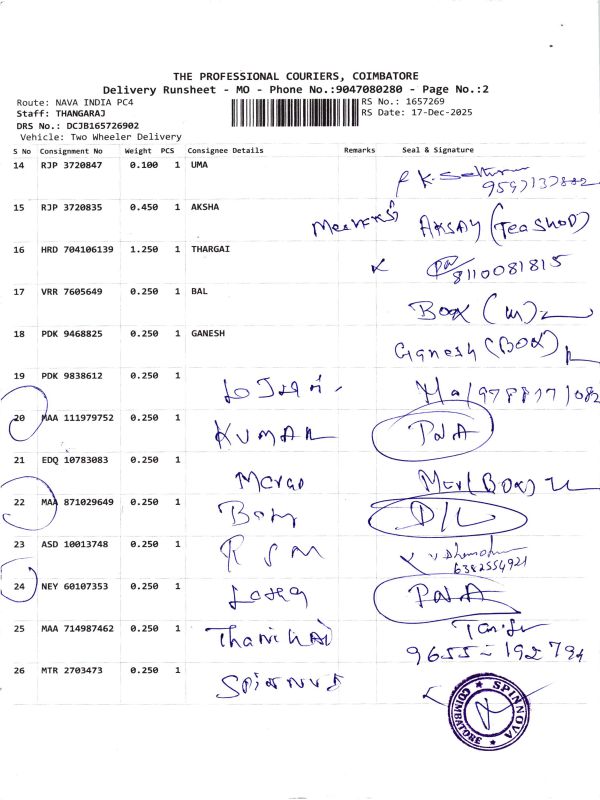 THE PROFESSIONAL COURIERS, COIMBATORE
Delivery Runsheet - MO - Phone No.:9047080280 - Page No.:2
Route: NAVA INDIA PC4
RS No.: 1657269
Staff: THANGARAJ
RS Date: 17-Dec-2025
DRS No.: DCJB165726902
Vehicle: Two Wheeler Delivery
S No Consignment No Weight PCS Consignee Details Remarks Seal & Signature
14 RJP 3720847 0.100 1 UMA
15 RJP 3720835 0.450 1 AKSHA AKSAY (Tea SHOP)
16 HRD 704106139 1.250 1 THARGAI
8110081815
17 VRR 7605649 0.250 1 BAL
Box
18 PDK 9468825 0.250 1 GANESH
Ganesh (BOX)
19 PDK 9838612 0.250 1
20 MAA 111979752 0.250 1 KUMAR PNA
21 EDQ 10783083 0.250 1
(Box)
22 MAA 871029649 0.250 1 D/L
23 ASD 10013748 0.250 1 RSM
6382554921
24 NEY 60107353 0.250 1 PNA
25 MAA 714987462 0.250 1
9655-192794
26 MTR 2703473 0.250 1
SPINNOVA
COIMBATORE